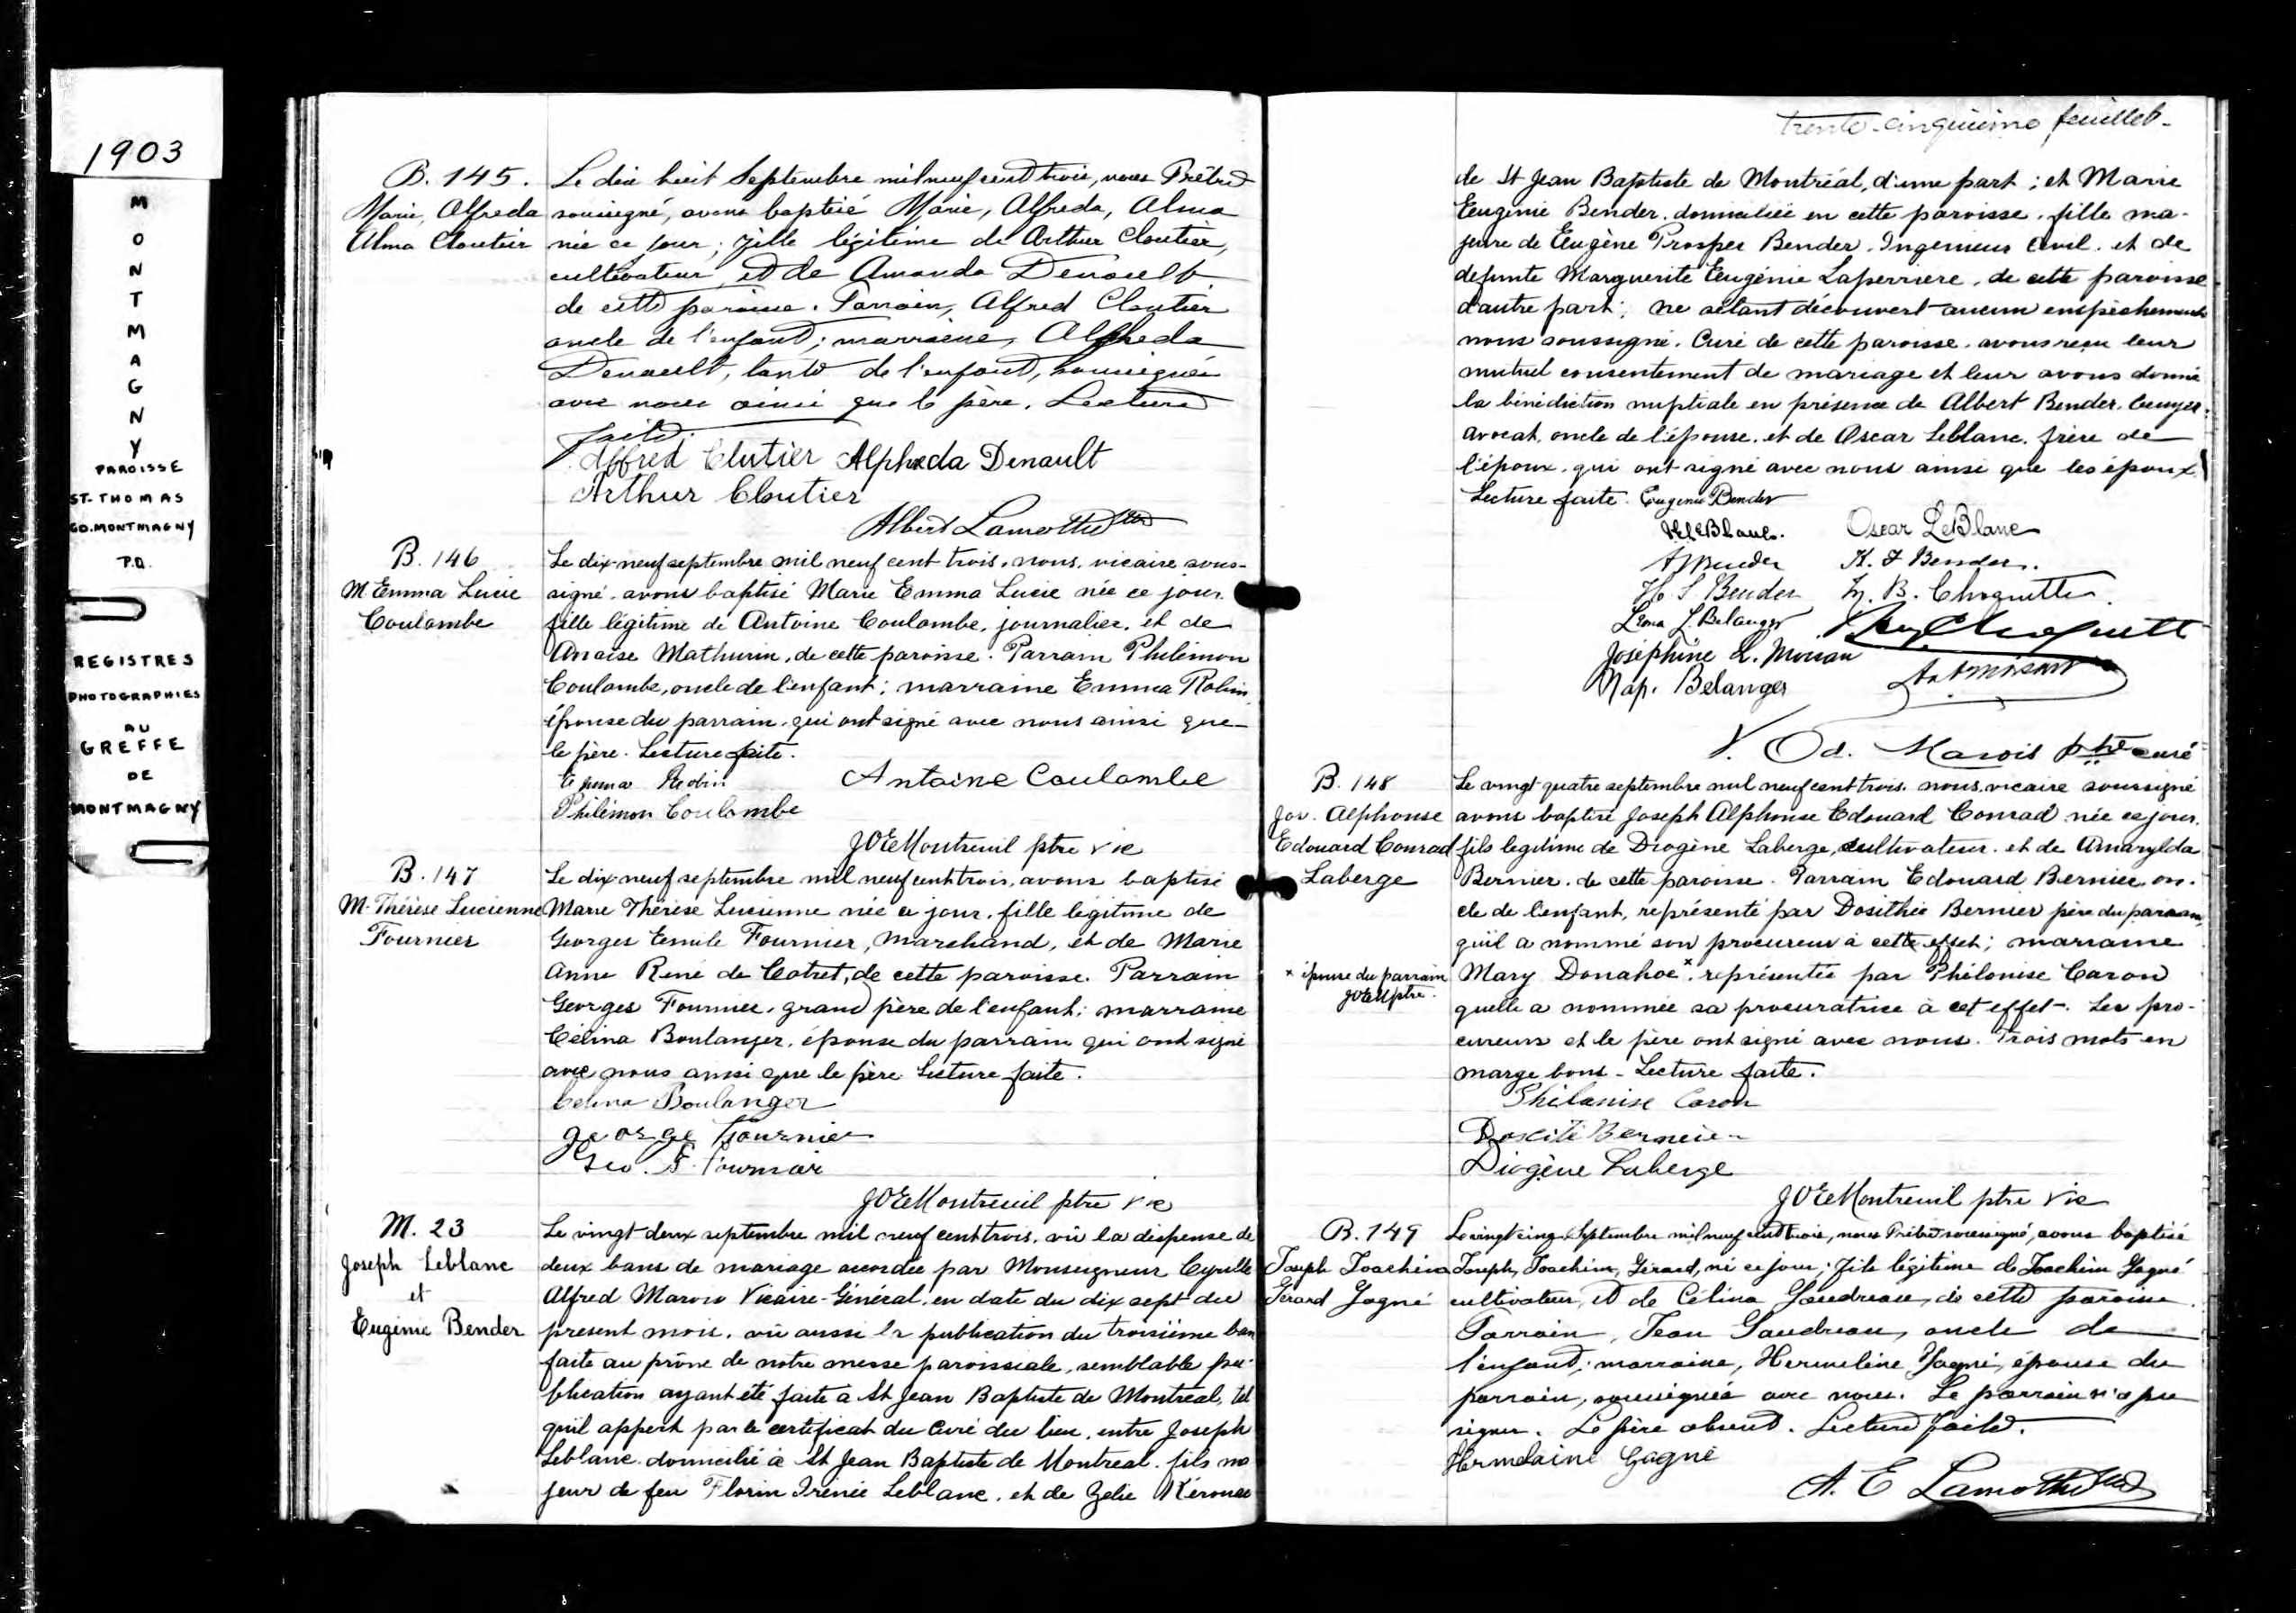 1903
MONTMAGNY
PAROISSE
ST. THOMAS
CO. MONTMAGNY
P.Q.
REGISTRES
PHOTOGRAPHIES
AU
GREFFE
DE
MONTMAGNY
B. 145.
Marie, Alfreda
Alma Cloutier
Le dix huit Septembre mil neuf cent trois, nous Prêtre
soussigné, avons baptisé Marie, Alfreda, Alma
née ce jour; fille légitime de Arthur Cloutier,
cultivateur, et de Amanda Denault
de cette paroisse. Parrain, Alfred Cloutier
oncle de l'enfant; marraine, Alpheda
Denault, tante de l'enfant, soussignés
avec nous ainsi que le père. Lecture
faite.
Alfred Clutier Alpheda Denault
Arthur Cloutier
Albert Lamothe Ptre
B. 146
M Emma Lucie
Coulombe
Le dix-neuf septembre mil neuf cent trois, nous, vicaire sous-
signé, avons baptisé Marie Emma Lucie née ce jour,
fille légitime de Antoine Coulombe, journalier, et de
Anaise Mathurin, de cette paroisse. Parrain Philémon
Coulombe, oncle de l'enfant; marraine Emma Robin,
épouse du parrain, qui ont signé avec nous ainsi que
le père. Lecture faite.
Emma Robin Antoine Coulombe
Philémon Coulombe
JOEMontreuil ptre vic
B. 147
M. Thérèse Lucienne
Fournier
Le dix-neuf septembre mil neuf cent trois, avons baptisé
Marie Thérèse Lucienne née ce jour, fille légitime de
Georges Emile Fournier, marchand, et de Marie
Anne René de Cotret, de cette paroisse. Parrain
Georges Fournier, grand père de l'enfant; marraine
Célina Boulanger, épouse du parrain qui ont signé
avec nous ainsi que le père. Lecture faite.
Celina Boulanger
George Fournier
Geo. E. Fournier
JOEMontreuil ptre vic
M. 23
Joseph Leblanc
et
Eugénie Bender
Le vingt-deux septembre mil neuf cent trois, vu la dispense de
deux bans de mariage accordée par Monseigneur Cyrille
Alfred Marois Vicaire-Général, en date du dix sept du
présent mois, vu aussi la publication du troisième ban
faite au prône de notre messe paroissiale, semblable pu-
blication ayant été faite à St Jean Baptiste de Montréal, tel
qu'il appert par le certificat du Curé du lieu, entre Joseph
Leblanc domicilié à St Jean Baptiste de Montréal, fils ma
jeur de feu Florin Irénée Leblanc, et de Zelie Kérouac
trente-cinquième feuillet-
de St Jean Baptiste de Montréal, d'une part; et Marie
Eugénie Bender, domiciliée en cette paroisse, fille ma-
jeure de Eugène Prosper Bender, Ingénieur Civil, et de
défunte Marguerite Eugénie Laperriere, de cette paroisse
d'autre part; ne s'étant découvert aucun empêchement
nous soussigné, Curé de cette paroisse, avons reçu leur
mutuel consentement de mariage et leur avons donné
la bénédiction nuptiale en présence de Albert Bender, Ecuyer,
avocat, oncle de l'épouse, et de Oscar Leblanc, frère de
l'époux, qui ont signé avec nous ainsi que les époux.
Lecture faite. Eugenie Bender
LeBlanc. Oscar LeBlanc
A Bender Bender.
Bender B. Choquette
L. Belanger Choquette
Joséphine L. Morian
Nap. Belanger
V. Od. Marois ptre curé
B. 148
Jos. Alphonse
Edouard Conrad
Laberge
Le vingt quatre septembre mil neuf cent trois, nous, vicaire soussigné
avons baptisé Joseph Alphonse Edouard Conrad née ce jour,
fils legitime de Diogène Laberge, cultivateur, et de Amarylda
Bernier, de cette paroisse. Parrain Edouard Bernier, on-
cle de l'enfant, représenté par Dosithée Bernier père du parrain,
qu'il a nommé son procureur à cette effet; marraine
Mary Donahoe x, représentée par Philonise Caron
quelle a nommée sa procuratrice à cet effet. Les pro-
cureurs et le père ont signé avec nous. Trois mots en
marge bons - Lecture faite.
x épouse du parrain
JOEM ptre.
Philonise Caron
Doscité Bernier
Diogène Laberge
JOEMontreuil ptre vic
B. 149
Joseph Joachim
Gérard Gagné
Le vingt cinq Septembre mil neuf cent trois, nous Prêtre soussigné, avons baptisé
Joseph, Joachim, Gérard, né ce jour; fils légitime de Joachim Gagné
cultivateur, et de Célina Gaudreau, de cette paroisse.
Parrain, Jean Gaudreau, oncle de
l'enfant; marraine, Hermeline Gagné, épouse du
parrain, soussignés avec nous. Le parrain n'a pu
signer. Le père absent. Lecture faite.
Hermelaine Gagné
A. E Lamothe Ptre